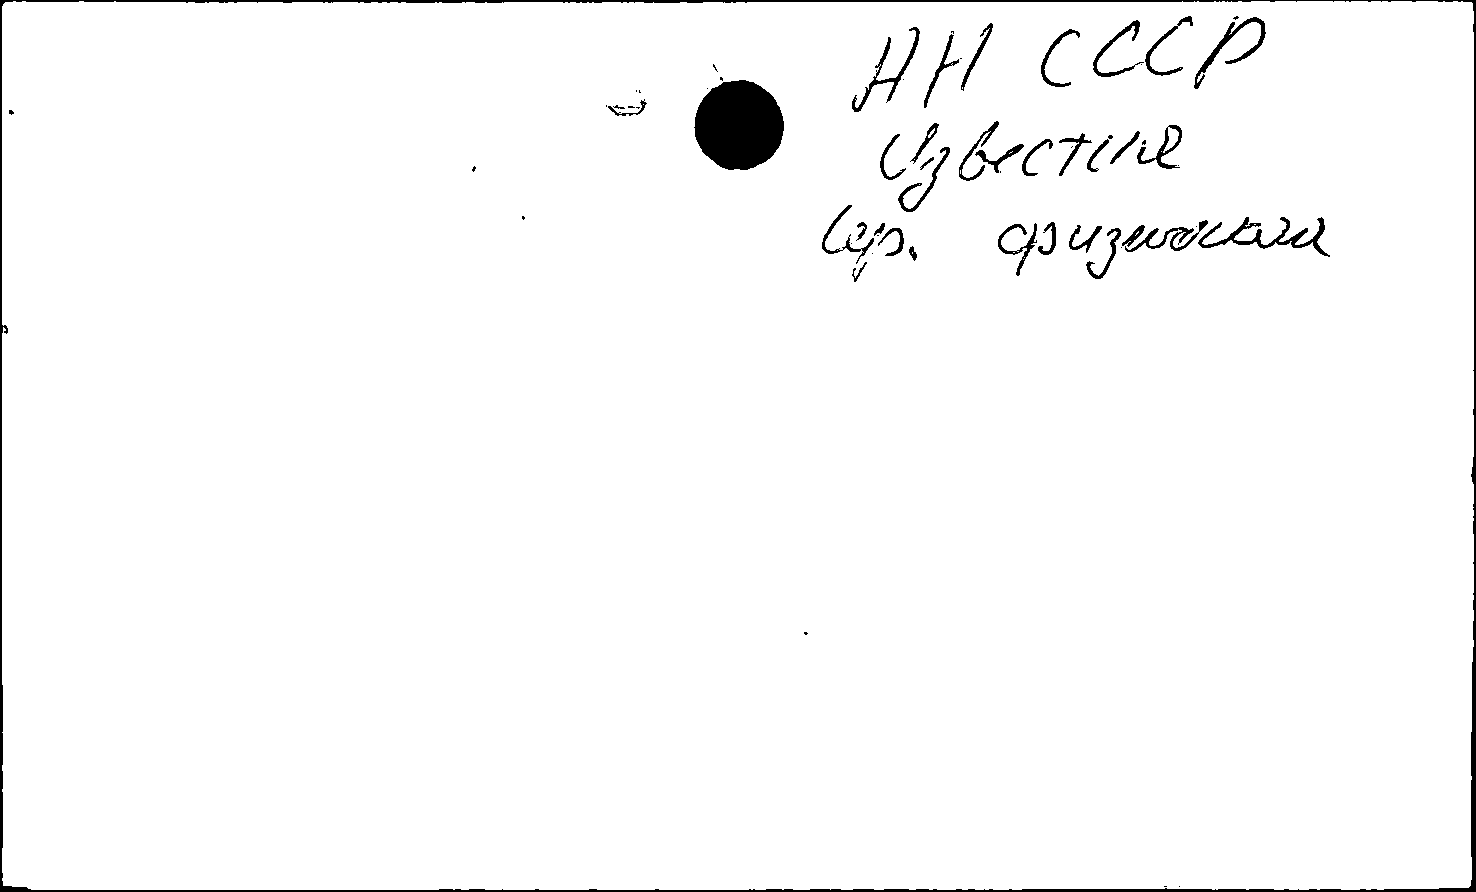 АН СССР
Известия
Сер. физическая